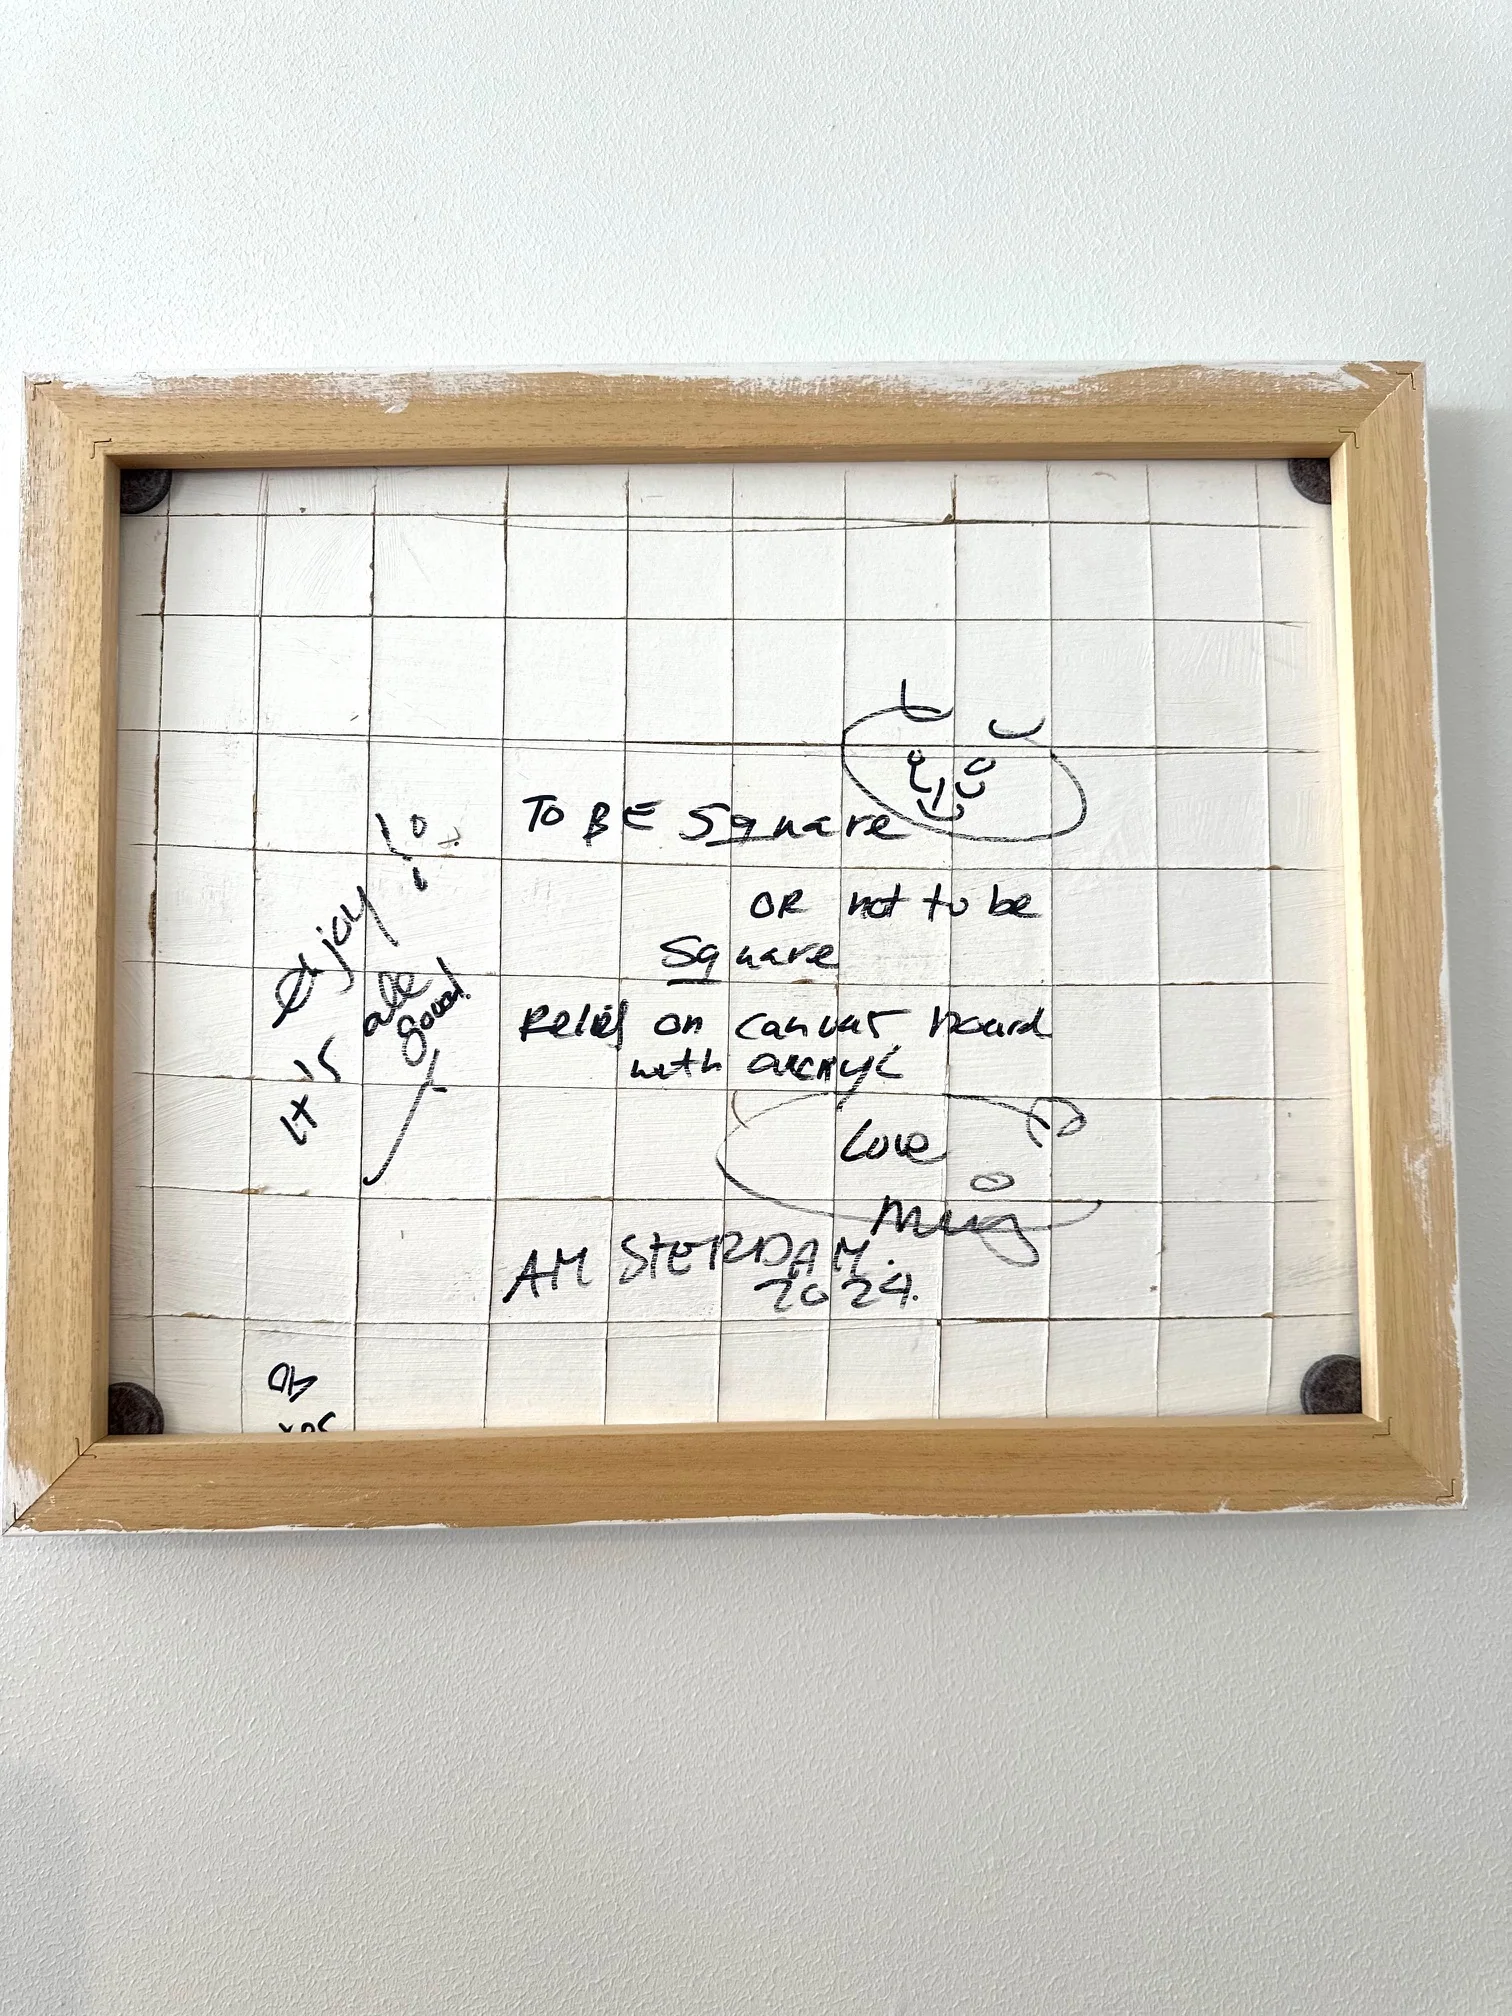 TO BE Square
OR not to be
Square
Relief on canvas board
with acryl
Love
AMSTERDAM.
2024.
enjoy!
it is
all
good!
Oh
yes